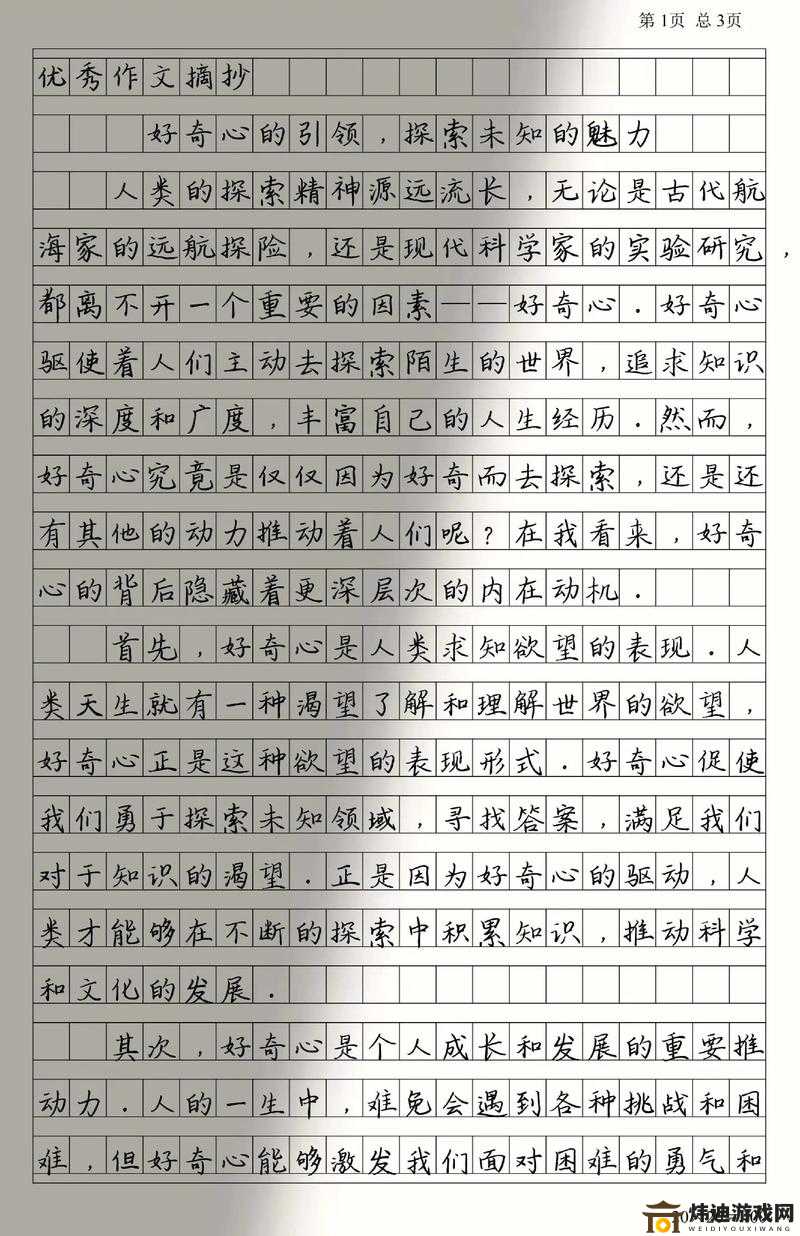 第1页 总3页
优秀作文摘抄
好奇心的引领，探索未知的魅力
人类的探索精神源远流长，无论是古代航
海家的远航探险，还是现代科学家的实验研究，
都离不开一个重要的因素——好奇心．好奇心
驱使着人们主动去探索陌生的世界，追求知识
的深度和广度，丰富自己的人生经历．然而，
好奇心究竟是仅仅因为好奇而去探索，还是还
有其他的动力推动着人们呢？在我看来，好奇
心的背后隐藏着更深层次的内在动机．
首先，好奇心是人类求知欲望的表现．人
类天生就有一种渴望了解和理解世界的欲望，
好奇心正是这种欲望的表现形式．好奇心促使
我们勇于探索未知领域，寻找答案，满足我们
对于知识的渴望．正是因为好奇心的驱动，人
类才能够在不断的探索中积累知识，推动科学
和文化的发展．
其次，好奇心是个人成长和发展的重要推
动力．人的一生中，难免会遇到各种挑战和困
难，但好奇心能够激发我们面对困难的勇气和
炜迪游戏网
WEIDIYOUXIWANG